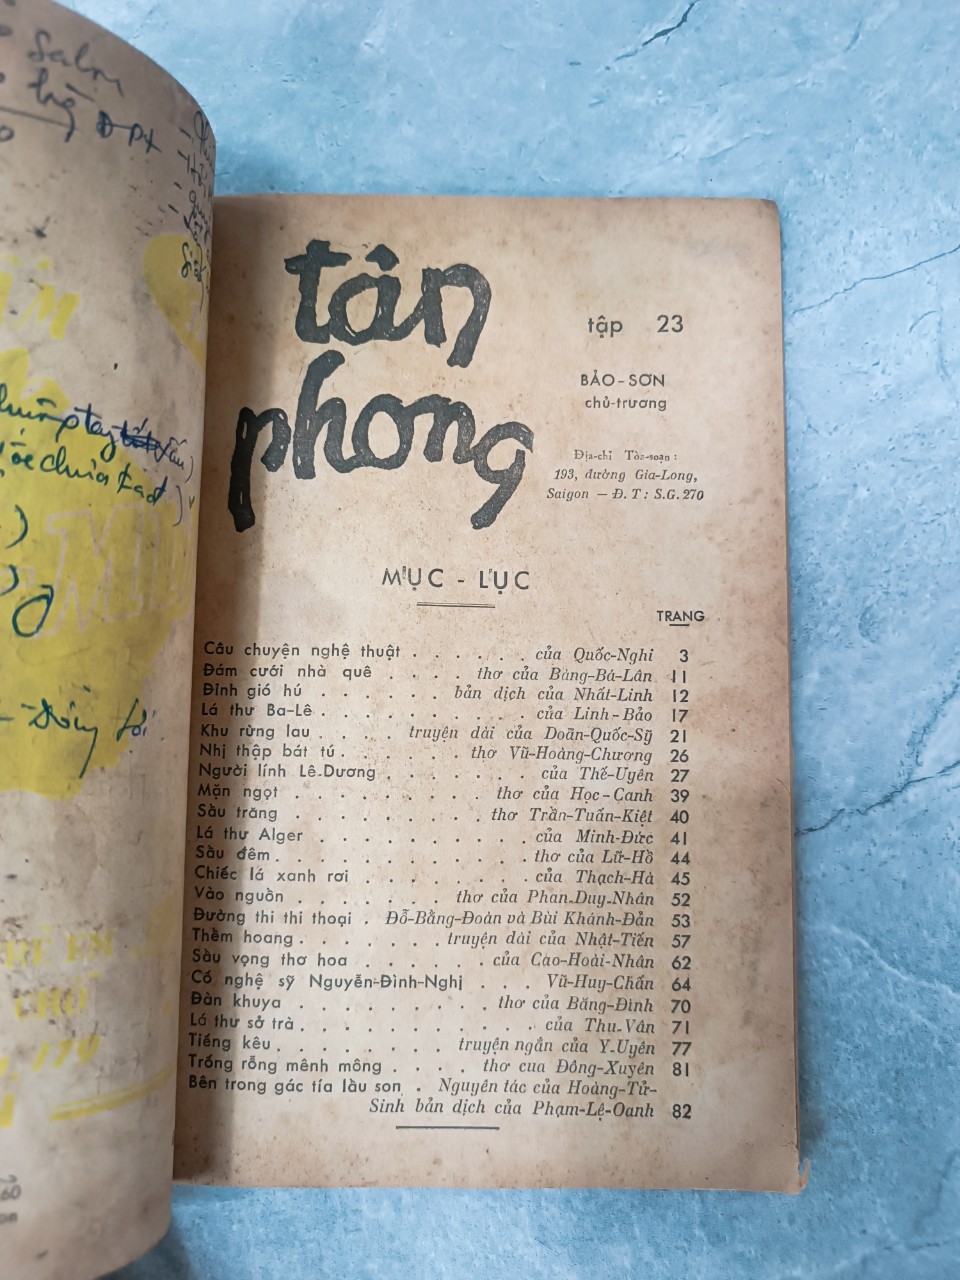 Salon
hè ĐPX
tân
phong
tập 23
BẢO-SƠN
chủ-trương
Địa-chỉ Tòa-soạn :
193, đường Gia-Long,
Saigon — Đ. T : S.G. 270
MỤC - LỤC
TRANG
Câu chuyện nghệ thuật . . . . . . của Quốc-Nghi 3
Đám cưới nhà quê . . . . thơ của Bàng-Bá-Lân 11
Đỉnh gió hú . . . . . . bản dịch của Nhất-Linh 12
Lá thư Ba-Lê . . . . . . . . . . của Linh-Bảo 17
Khu rừng lau . . . . truyện dài của Doãn-Quốc-Sỹ 21
Nhị thập bát tú . . . . . . thơ Vũ-Hoàng-Chương 26
Người lính Lê-Dương . . . . . . . của Thế-Uyên 27
Mặn ngọt . . . . . . . . . thơ của Học-Canh 39
Sầu trăng . . . . . . . . thơ Trần-Tuấn-Kiệt 40
Lá thư Alger . . . . . . . . . của Minh-Đức 41
Sầu đêm . . . . . . . . . . . . thơ của Lữ-Hồ 44
Chiếc lá xanh rơi . . . . . . . . của Thạch-Hà 45
Vào nguồn . . . . . . . thơ của Phan-Duy-Nhân 52
Đường thi thi thoại . Đỗ-Bằng-Đoàn và Bùi Khánh-Đản 53
Thềm hoang . . . . . . . truyện dài của Nhật-Tiến 57
Sầu vọng thơ hoa . . . . . . của Cao-Hoài-Nhân 62
Cố nghệ sỹ Nguyễn-Đình-Nghị . . . Vũ-Huy-Chấn 64
Đàn khuya . . . . . . . . . thơ của Băng-Đình 70
Lá thư sở trà . . . . . . . . . . . của Thu-Vân 71
Tiếng kêu . . . . . . . . truyện ngắn của Y-Uyên 77
Trống rỗng mênh mông . . . . thơ của Đông-Xuyên 81
Bên trong gác tía lầu son . Nguyên tác của Hoàng-Tử-
Sinh bản dịch của Phạm-Lệ-Oanh 82